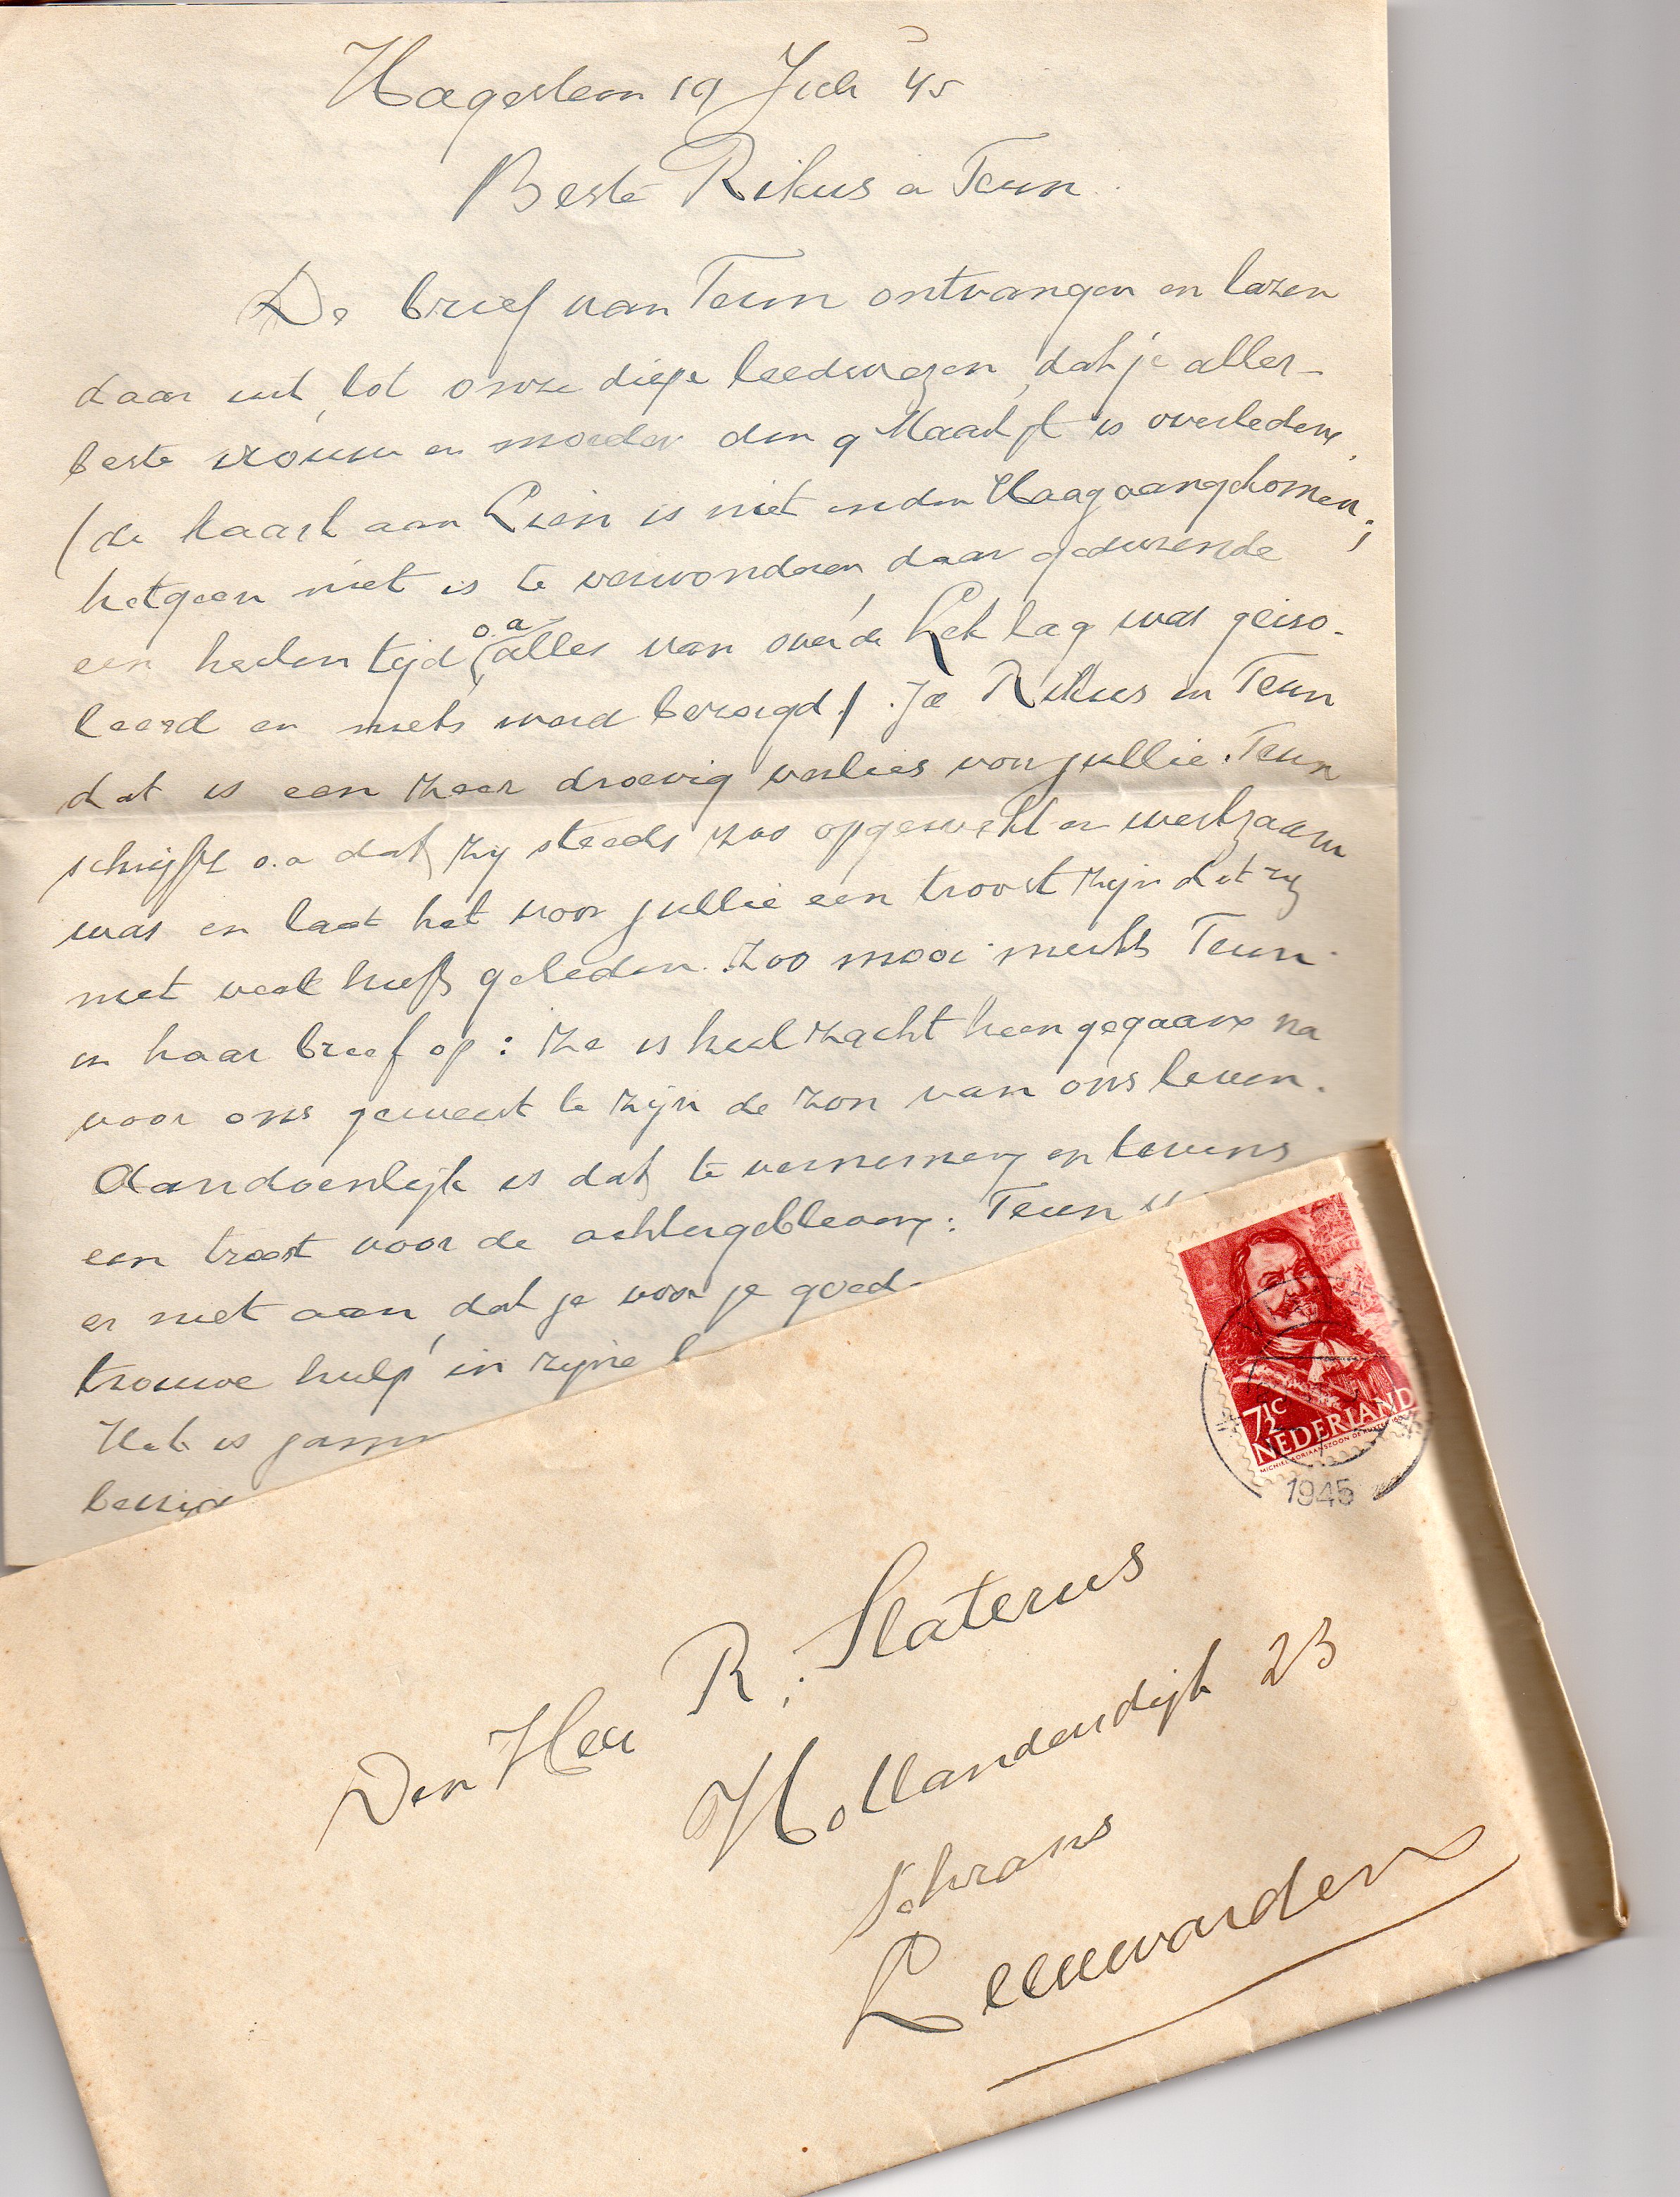 Hagestein 19 Juli '45
Beste Rikus en Teun.
De brief van Teun ontvangen en lazen
daar uit, tot onze diepe leedwezen, dat je aller-
beste vrouw en moeder den 9 Maart jl is overleden.
(de kaart aan Lien is niet in den Haag aangekomen;
hetgeen niet is te verwonderen, daar gedurende
een heelen tijd o.a alles van over de Lek lag was geiso-
leerd en niets werd bezorgd). Ja Rikus en Teun
dat is een zeer droevig verlies voor jullie. Teun
schrijft o.a dat zij steeds zoo opgewekt en werkzaam
was en laat het voor jullie een troost zijn dat zij
niet veel heeft geleden. Zoo mooi merkt Teun
in haar brief op: Ze is heel zacht heengegaan na
voor ons geweest te zijn de zon van ons leven.
Aandoenlijk is dat te vernemen en tevens
een troost voor de achtergebleven: Teun
er niet aan, dat je voor je goede
trouwe hulp in zijne
Het is jammer
7½c
NEDERLAND
MICHIEL ADRIAANSZOON DE RUYTER
1945
Den Heer R. Slaterus
Hollanderdijk 23
Schrans
Leeuwarden